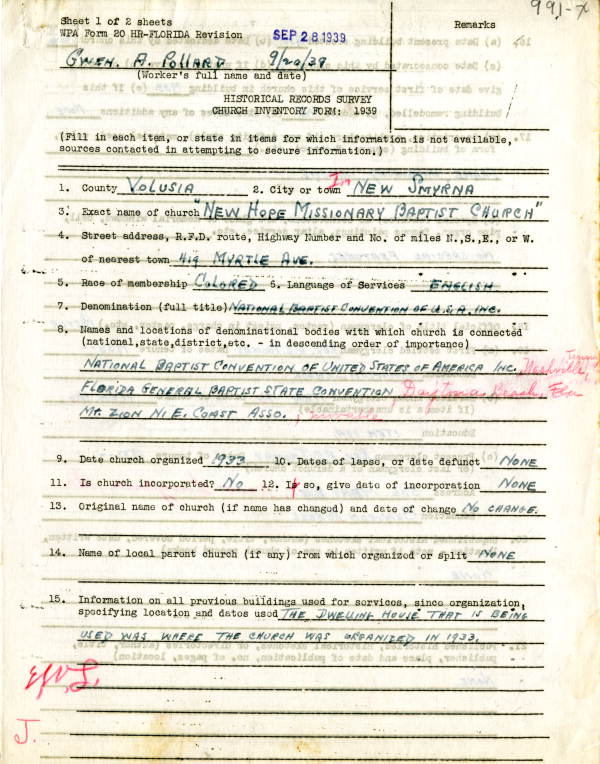 991-X
Sheet 1 of 2 sheets
WPA Form 20 HR-FLORIDA Revision
SEP 28 1939
Remarks
Gwen. A. Pollard 9/20/39
(Worker's full name and date)
HISTORICAL RECORDS SURVEY
CHURCH INVENTORY FORM: 1939
(Fill in each item, or state in items for which information is not available,
sources contacted in attempting to secure information.)
1. County VOLUSIA 2. City or town In NEW SMYRNA
3. Exact name of church "NEW HOPE MISSIONARY BAPTIST CHURCH"
4. Street address, R.F.D. route, Highway Number and No. of miles N.,S.,E., or W.
of nearest town 419 MYRTLE AVE.
5. Race of membership COLORED 6. Language of Services ENGLISH
7. Denomination (full title) NATIONAL BAPTIST CONVENTION OF U.S.A. INC.
8. Names and locations of denominational bodies with which church is connected
(national,state,district,etc. - in descending order of importance)
NATIONAL BAPTIST CONVENTION OF UNITED STATES OF AMERICA INC. Nashville,
FLORIDA GENERAL BAPTIST STATE CONVENTION, Daytona Beach, Fla
MT. ZION N. E. COAST ASSO.,
9. Date church organized 1933 10. Dates of lapse, or date defunct NONE
11. Is church incorporated? NO 12. If so, give date of incorporation NONE
13. Original name of church (if name has changed) and date of change NO CHANGE.
14. Name of local parent church (if any) from which organized or split NONE
15. Information on all previous buildings used for services, since organization,
specifying location and dates used THE DWELLING HOUSE THAT IS BEING
USED WAS WHERE THE CHURCH WAS ORGANIZED IN 1933.
J.